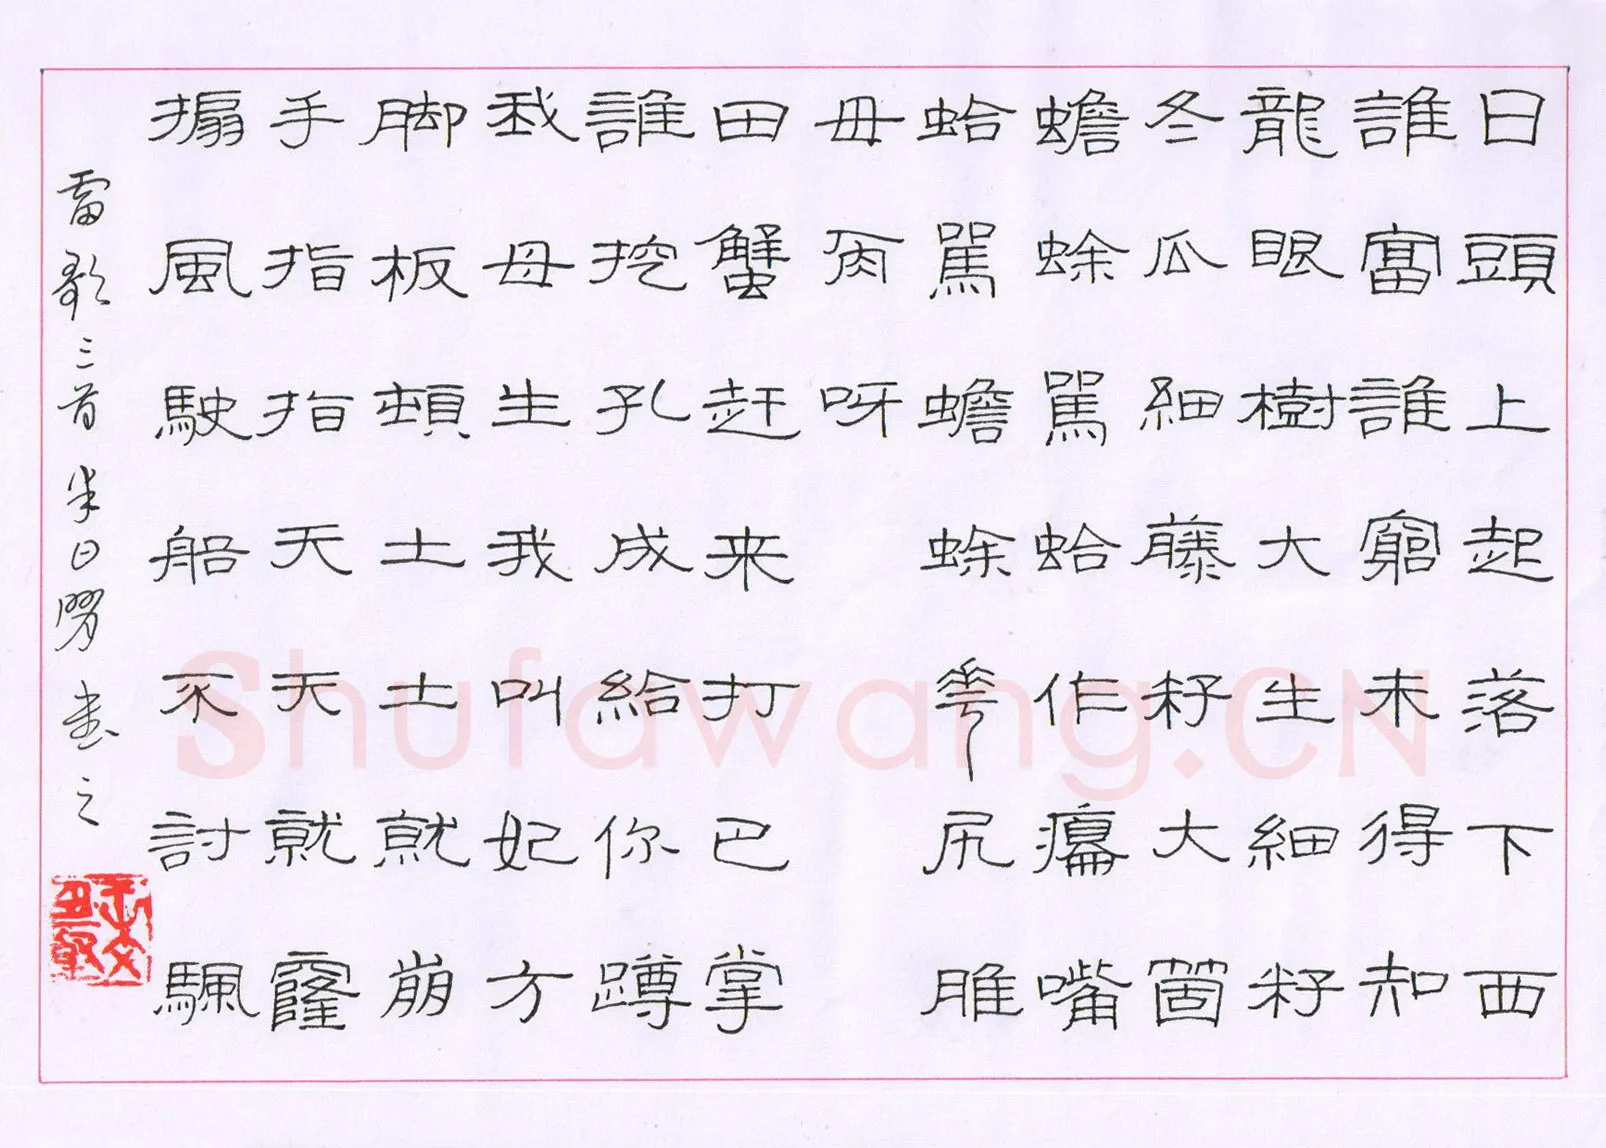 日頭上起落下西
誰富誰窮未得知
龍眼樹大生細籽
冬瓜細藤籽大箇
蟾蜍罵蛤作癟嘴
蛤罵蟾蜍尻脽
毋呀
田蟹赶来打巴掌
誰挖孔成給你蹲
我母生我叫妃方
脚板頓土土就崩
手指指天天就窿
搧風駛船不討颿
雷歌三首 半日勞書之
Shufawang.CN